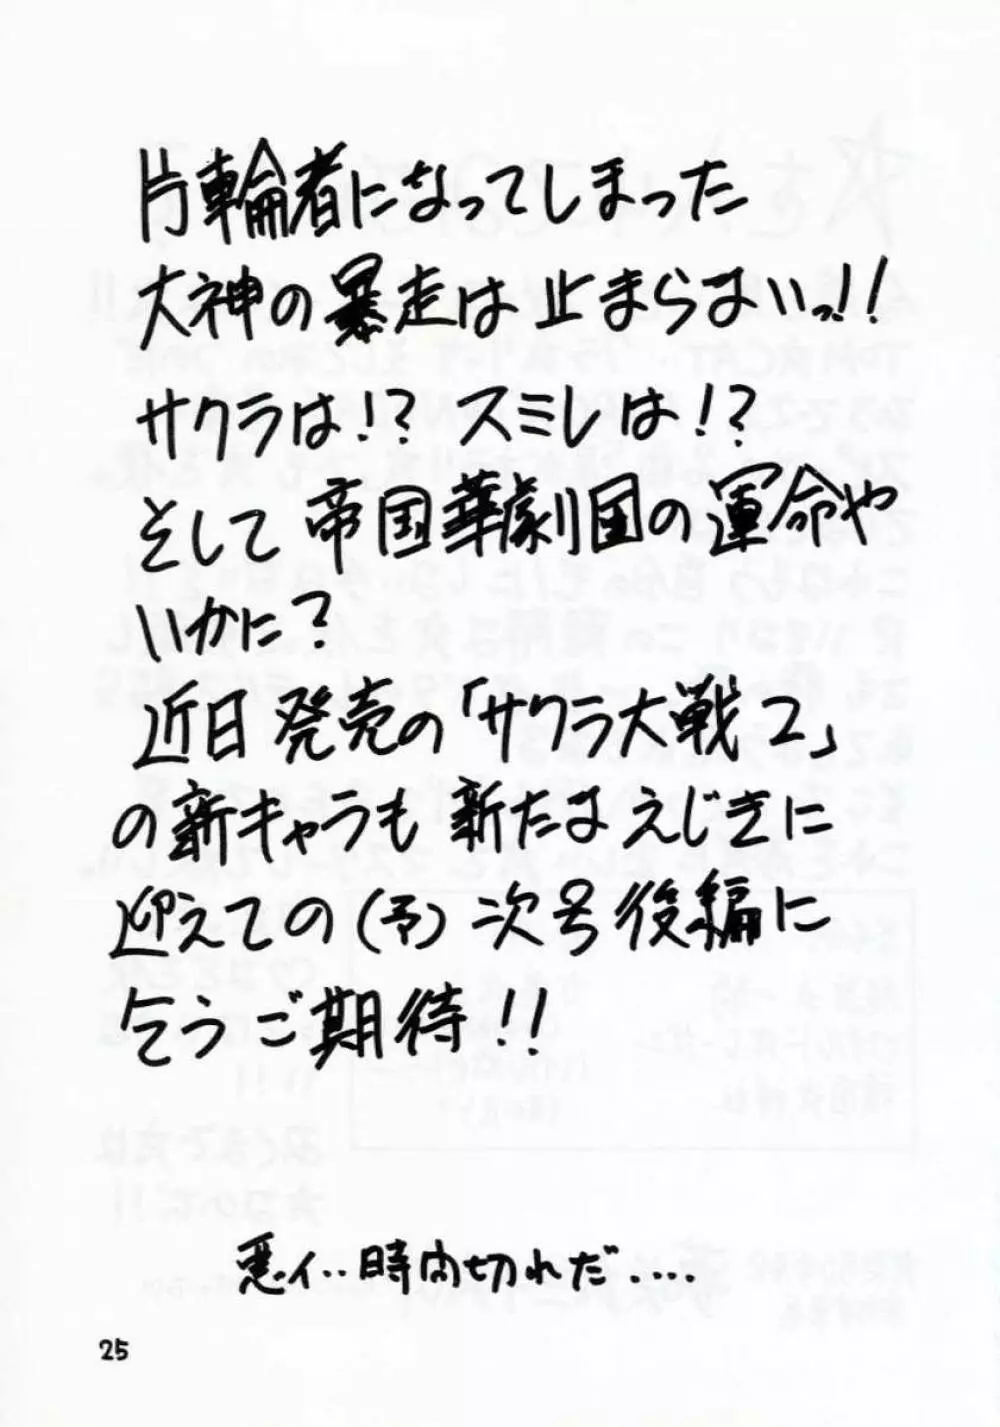 片輪者になってしまった
大神の暴走は止まらないっ!!
サクラは!? スミレは!?
そして帝国華劇国の運命や
いかに?
近日発売の「サクラ大戦2」
の新キャラも新たなえじきに
迎えての(予)次号後編に
乞うご期待!!
悪イ‥時間切れだ‥‥
25